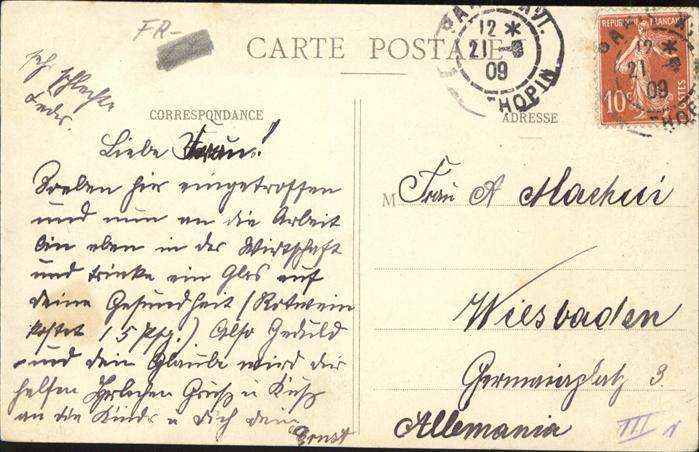 FR-
CARTE POSTALE
12
21
09
CHOPIN
REPUBLIQUE FRANÇAISE
10c
POSTES
sehr schlechte
Feder.
CORRESPONDANCE
ADRESSE
Liebe Frau!
Soeben hier eingetroffen
und nun an die Arbeit
bin eben in der Wirtschaft
und trinke ein Glas auf
deine Gesundheit (Rotwein
kostet 15 Pfg.) Also Geduld
und dein Glaube wird dir
helfen Herzlichen Gruß u Kuß
an die Kinder u Dich dein
Ernst
M Frau A
Wiesbaden
3.
Allemania
III